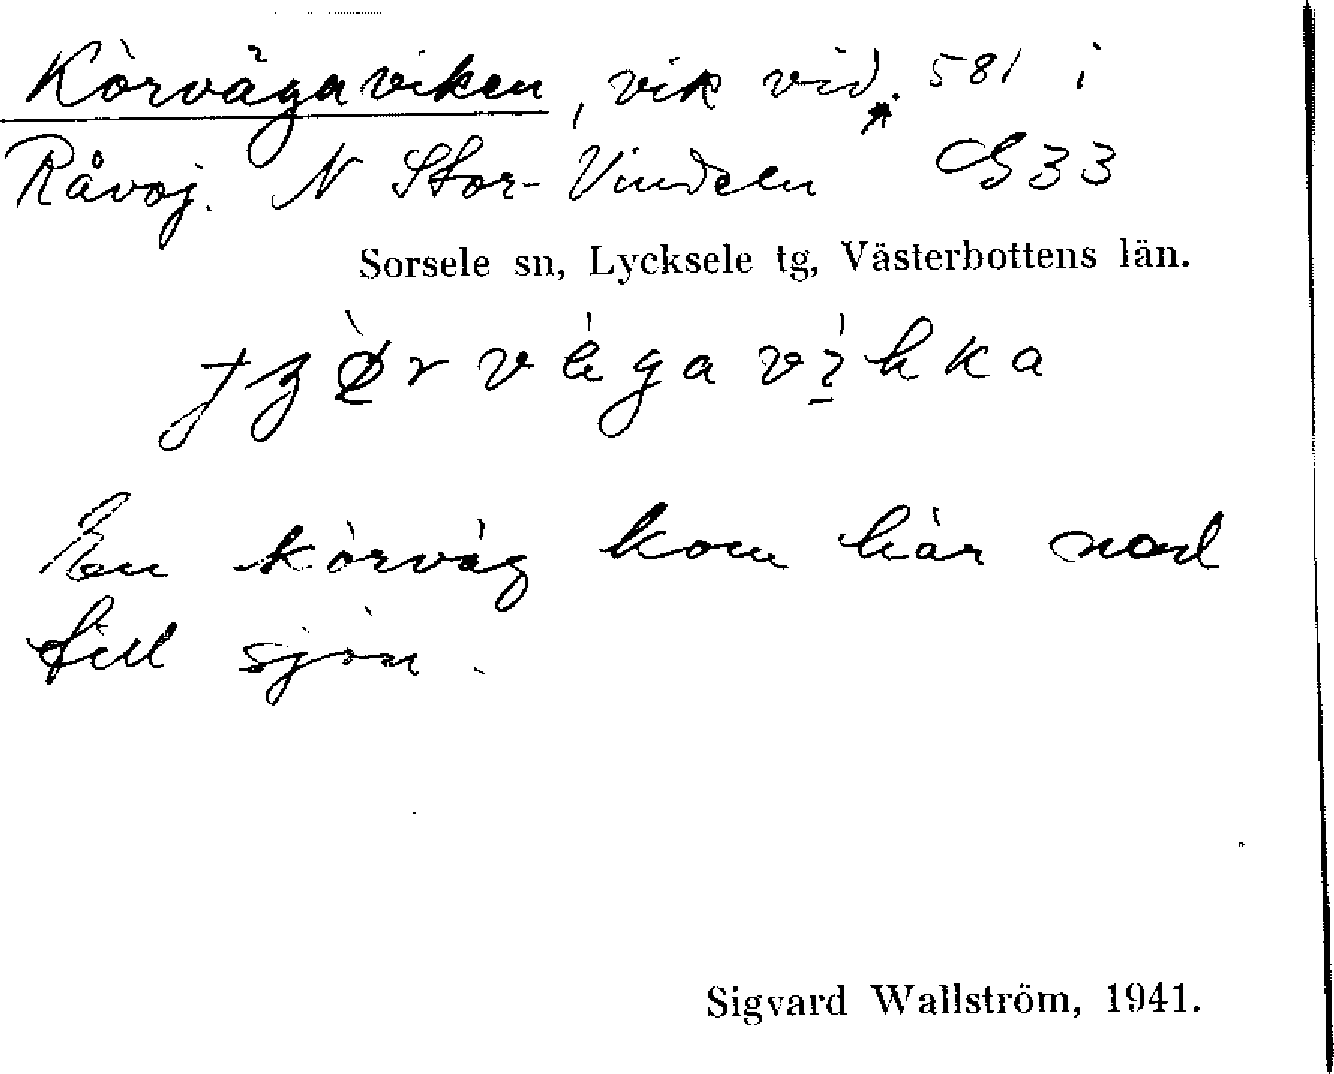 Körvägaviken, vik vid. 581 i
Råvoj. N Stor-Vindeln G33
Sorsele sn, Lycksele tg, Västerbottens län.
En körväg kom här ned
till sjön.
Sigvard Wallström, 1941.